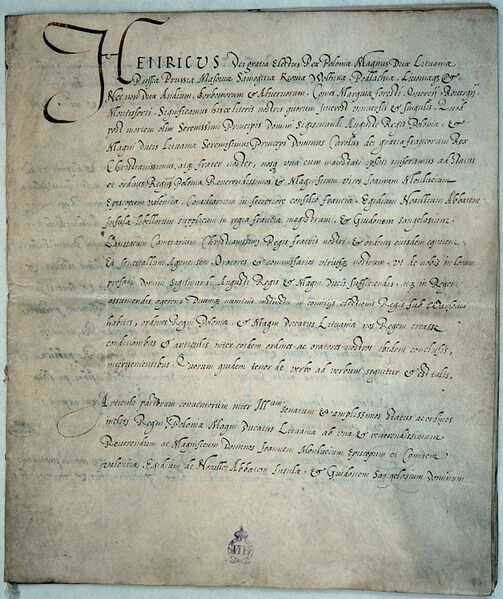 HENRICUS Dei gratia Electus Rex Poloniæ Magnus Dux Lituaniæ
Russiæ Prussiæ Masoviæ Samogitiæ Kioviæ Wolhiniæ, Podlachiæ, Livoniæq; &
Nec non Dux Andium, Borboniorum & Alvernorum, Comes Marchiæ Foresti, Quercii, Rovergii
Montisforti. Significamus hisce literis nostris quorum interest universis & singulis. Quod
post mortem olim Serenissimi Principis Domini Sigismundi Augusti Regis Poloniæ &
Magni Ducis Lituaniæ Serenissimus Princeps Dominus Carolus dei gratia francorum Rex
Christianissimus, atq; frater noster, nosq; una cum maiestate ipsius miseramus ad status
et ordines Regni Poloniæ Reverendissimos & Magnificum viros Ioannem Monlucium
Episcopum valentiæ Consiliarium in secretiore consilio franciæ. Egidium Noallium Abbatem
Insulæ libellorum supplicum in regia franciæ magistrum, & Guidonem Sangelasium
Lansacum Camerarium Christianissimi Regis fratris nostri & ordinis eiusdem equitem
Et senescallum Agenensem, Oratores & commissarios utriusq; nostrum, ut de nobis in locum
præfati Domini Sigismundi Augusti Regis & Magni Ducis sufficiendis, atq; in Regem
assumendis agerent. Dumq; nuntius in comitiis electionis Regis sub Warsovia
habitis, ordines Regni Poloniæ & Magni Ducatus Lituaniæ nos Regem creasse
conditionibus & articulis inter eosdem ordines ac oratores nostros ibidem conclusis,
intervenientibus. Quorum quidem tenor de verbo ad verbum sequitur & est talis.
Articuli pactorum conventorum inter Ill.am senatum & amplissimos status ac ordines
Regni Poloniæ Magni Ducatus Lituaniæ ab una & reverendissimum
Reverendum ac Magnificum Dominos Ioannem Monlucium Episcopum et Comitem
valentiæ, Egidium de Noailles Abbatem Insulæ, & Guidonem Sangelasium Dominum